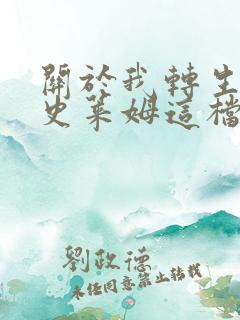 關於我轉生
史萊姆這檔
劉政德
未經同意禁止轉載